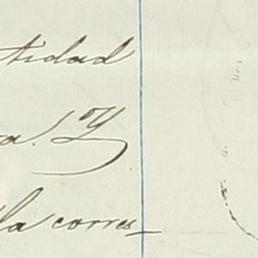 ntidad
a. Y
la corres_